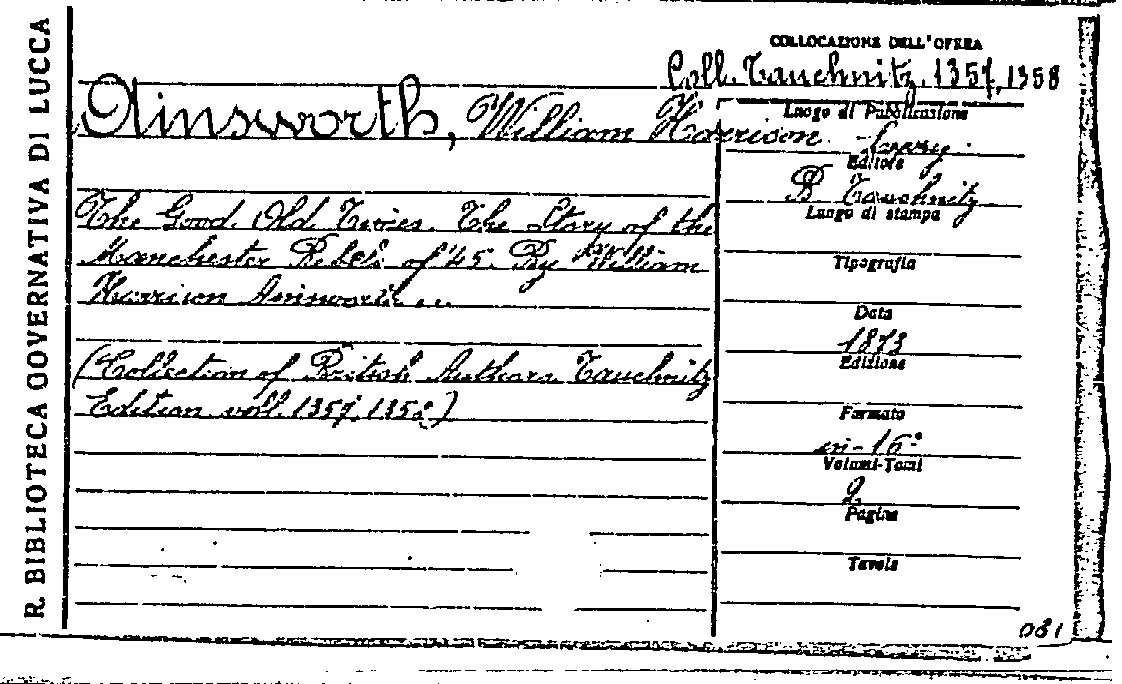 R. BIBLIOTECA GOVERNATIVA DI LUCCA
COLLOCAZIONE DELL'OPERA
Coll. Tauchnitz, 1357, 1358
Ainsworth, William Harrison.
The Good Old Times. The Story of the
Manchester Rebels of '45. By William
Harrison Ainsworth ...
(Collection of British Authors. Tauchnitz
Edition voll. 1357, 1358)
Luogo di Pubblicazione
Editore
B Tauchnitz
Luogo di stampa
Tipografia
Data
1873
Edizione
Formato
in-16°
Volumi-Tomi
2
Pagine
Tavole
081